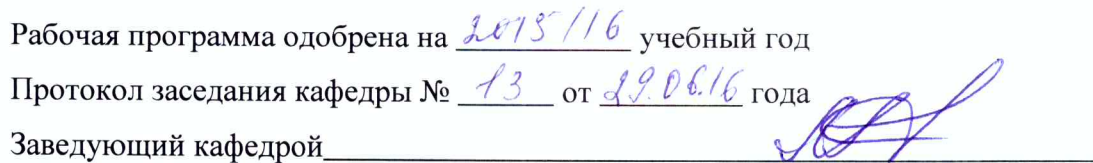 Рабочая программа одобрена на 2015/16 учебный год
Протокол заседания кафедры № 13 от 29.06.16 года
Заведующий кафедрой